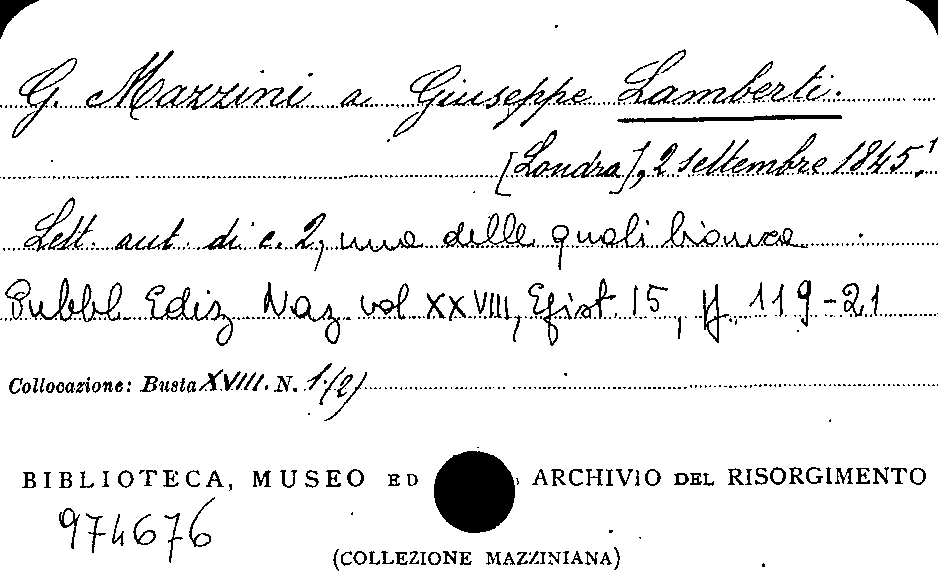 G. Mazzini a Giuseppe Lamberti.
[Londra], 2 settembre 1845.
Lett. aut. di c. 2, una delle quali bianca
Pubbl. Ediz. Naz. vol XXVIII, Epist. 15, pp. 119-21
Collocazione: Busta XVIII. N. 1.(2)
BIBLIOTECA, MUSEO ED ARCHIVIO DEL RISORGIMENTO
974676
(COLLEZIONE MAZZINIANA)